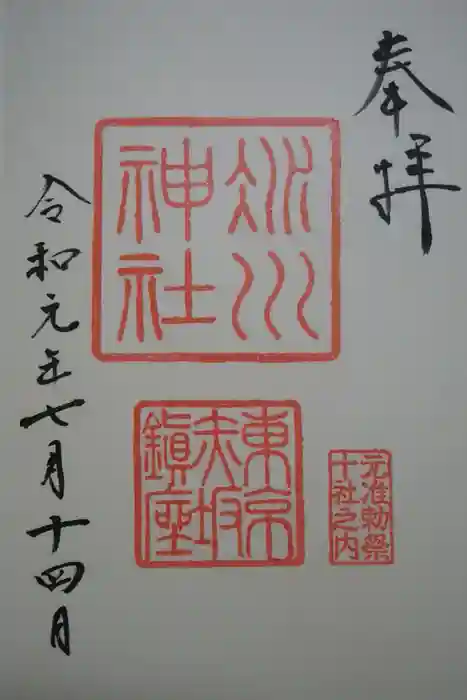 奉拝
氷川
神社
東京
赤坂
鎮座
元准勅祭
十社之内
令和元年七月十四月